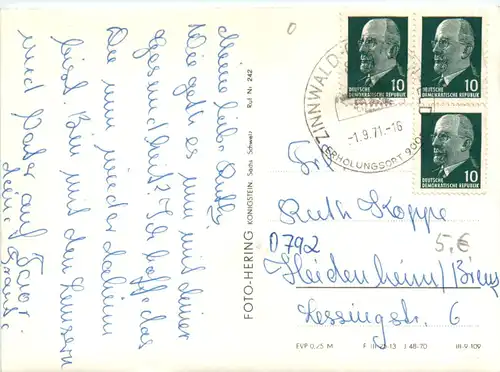 Meine liebe Ruth,
Wie geht es nun mit deiner
Gesundheit? Ich hoffe das
Du nun wieder daheim
bist. Bin mit den
und Vater auf
deine
FOTO-HERING KÖNIGSTEIN Sächs. Schweiz Ruf Nr. 242
10
DEUTSCHE
DEMOKRATISCHE REPUBLIK
10
DEUTSCHE
DEMOKRATISCHE REPUBLIK
10
DEUTSCHE
DEMOKRATISCHE REPUBLIK
ZINNWALD-
-1.9.71.-16
ERHOLUNGSORT 900
Frl.
Ruth Koppe
D 792
5,€
Heidenheim/Brenz
Lessingstr. 6
EVP 0,25 M